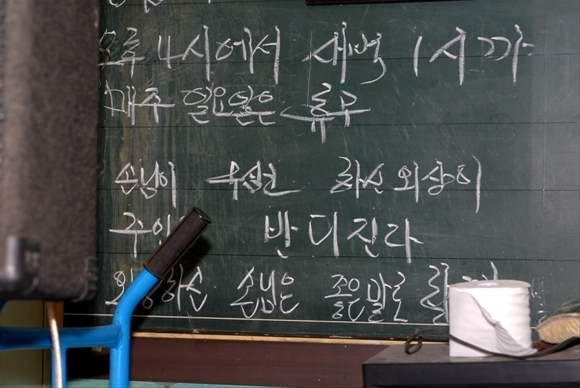 오후 4시에서 새벽 1시 까
매주 일요일은 휴무
손님이 우선 하신 외상이
반 디진다
손님은 좋은말로 할